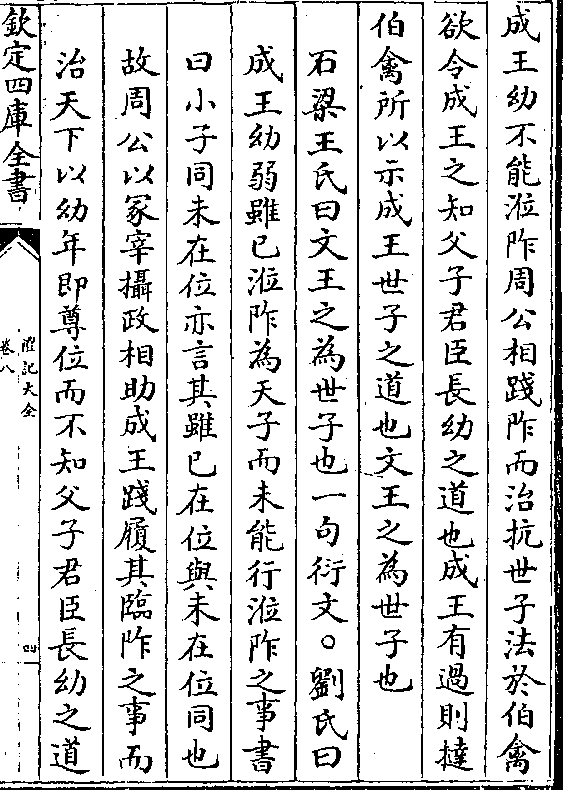 成王幼不能涖阼周公相踐阼而治抗世子法於伯禽
欲令成王之知父子君臣長幼之道也成王有過則撻
伯禽所以示成王世子之道也文王之為世子也
石梁王氏曰文王之為世子也一句衍文○劉氏曰
成王幼弱雖已涖阼為天子而未能行涖阼之事書
曰小子同未在位亦言其雖已在位與未在位同也
故周公以冡宰攝政相助成王踐履其臨阼之事而
治天下以幼年即尊位而不知父子君臣長幼之道
欽定四庫全書
禮記大全
卷八
四